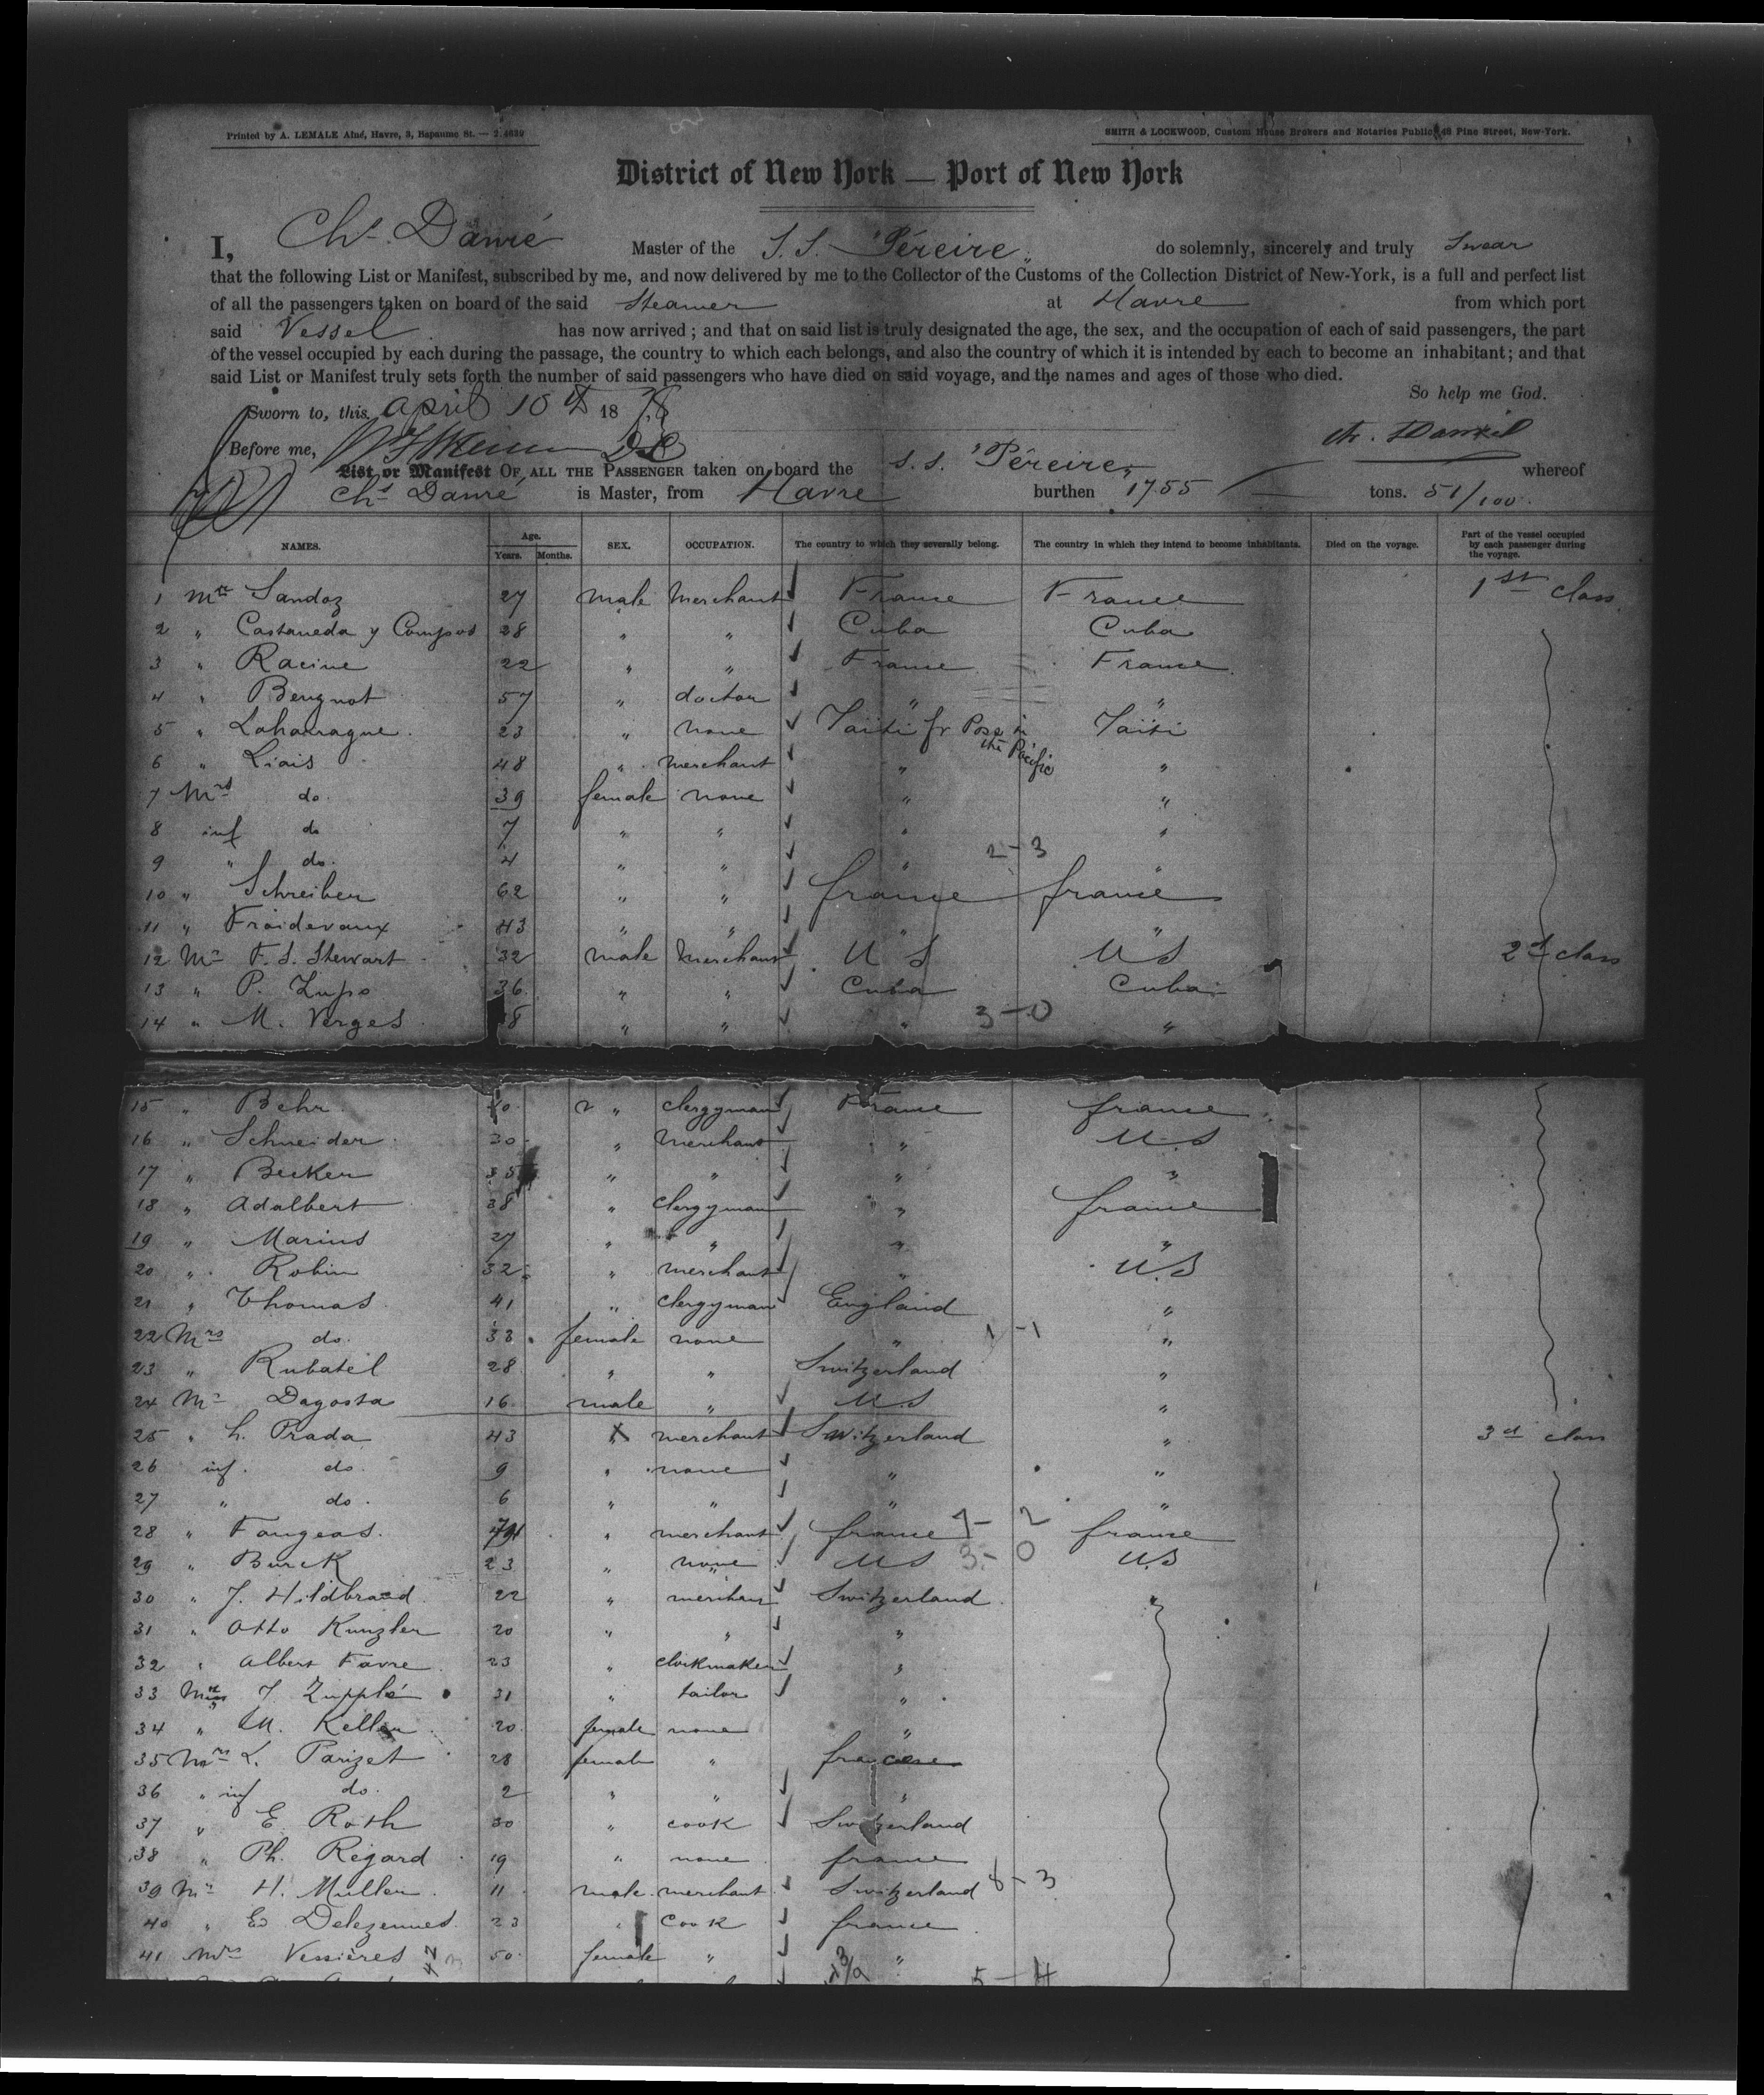 Printed by A. LEMALE Aîné, Havre, 3, Bapaume St. — 2.4639
SMITH & LOCKWOOD, Custom House Brokers and Notaries Public, 48 Pine Street, New-York.
District of New York — Port of New York
I, Chs. Danré Master of the S.S. "Péreire" do solemnly, sincerely and truly Swear
that the following List or Manifest, subscribed by me, and now delivered by me to the Collector of the Customs of the Collection District of New-York, is a full and perfect list
of all the passengers taken on board of the said Steamer at Havre from which port
said Vessel has now arrived; and that on said list is truly designated the age, the sex, and the occupation of each of said passengers, the part
of the vessel occupied by each during the passage, the country to which each belongs, and also the country of which it is intended by each to become an inhabitant; and that
said List or Manifest truly sets forth the number of said passengers who have died on said voyage, and the names and ages of those who died.
So help me God.
Sworn to, this April 10th 1878
Before me,
List or Manifest OF ALL THE PASSENGER taken on board the S.S. "Péreire" whereof
Chs. Danré is Master, from Havre burthen 1755 tons. 51/100.
NAMES. Age. Years. Months. SEX. OCCUPATION. The country to which they severally belong. The country in which they intend to become inhabitants. Died on the voyage. Part of the vessel occupied by each passenger during the voyage.
1 Mr Sandoz 27 male Merchant France France 1st class
2 " Castaneda y Campos 28 " " Cuba Cuba
3 " Racine 22 " " France France
4 " Beugnot 57 " doctor " "
5 " Laharrague 23 " none Taïti fr Poss in the Pacific Taïti
6 " Liais 48 " merchant " "
7 Mrs do. 39 female none " "
8 inf do 7 " " " "
9 " do. 4 " " " 2-3 "
10 " Schreiber 62 " " france france
11 " Froidevaux 43 " " " "
12 Mr F. S. Stewart 32 male Merchant U S U S 2d class
13 " P. Lupo 36 " " Cuba Cuba
14 " M. Verges 8 " " " 3-0 "
15 " Behr 40 " clergyman France france
16 " Schneider 30 " Merchant " U.S
17 " Becker 35 " " " "
18 " Adalbert 38 " clergyman " france
19 " Marius 27 " " " "
20 " Robin 32 " merchant " U.S
21 " Thomas 41 " clergyman England "
22 Mrs do. 33 female none " 1-1 "
23 " Rubatel 28 " " Switzerland "
24 Mr Dagosta 16 male " U S "
25 " L. Prada 43 " merchant Switzerland " 3d class
26 inf. do. 9 " none " "
27 " do. 6 " " " "
28 " Fougeas. " merchant france 1-2 france
29 " Burck 23 " none U S 3-0 U S
30 " J. Hildbrand 22 " merchant Switzerland "
31 " Otto Kunzler 20 " " "
32 " Albert Favre 23 " clockmaker "
33 J. Zupplé 31 " tailor "
34 " M. Keller 20 female none "
35 Mrs L. Parizet 28 female " france
36 " inf do. 2 " " "
37 " E. Roth 30 " cook Switzerland
38 " Ph. Regard 19 " none france
39 Mr H. Muller 11 male merchant Switzerland 8-3
40 " Ed Delezennes 23 " Cook france
41 Mrs Vessières 50 female " " 5-4